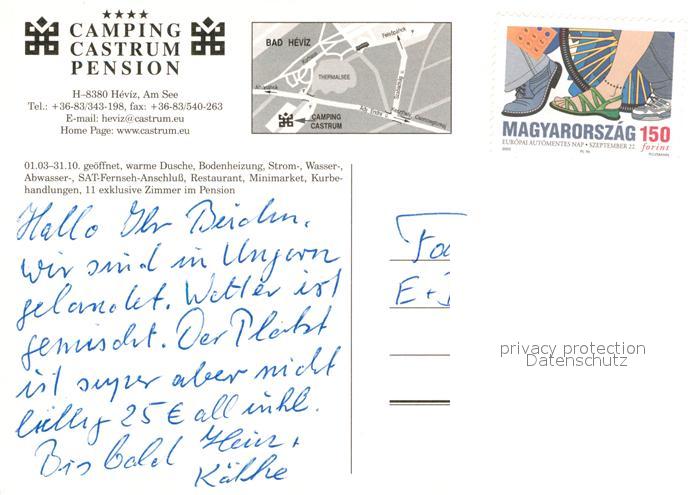 CAMPING
CASTRUM
PENSION
H–8380 Hévíz, Am See
Tel.: +36-83/343-198, fax: +36-83/540-263
E-mail: heviz@castrum.eu
Home Page: www.castrum.eu
BAD HÉVÍZ
THERMALSEE
CAMPING
CASTRUM
MAGYARORSZÁG 150
forint
EURÓPAI AUTÓMENTES NAP • SZEPTEMBER 22.
01.03–31.10. geöffnet, warme Dusche, Bodenheizung, Strom-, Wasser-,
Abwasser-, SAT-Fernseh-Anschluß, Restaurant, Minimarket, Kurbe-
handlungen, 11 exklusive Zimmer im Pension
Hallo Ihr Beiden,
wir sind in Ungarn
gelandet. Wetter ist
gemischt. Der Platz
ist super aber nicht
billig 25 € all inkl.
Bis bald Heinz +
Käthe
Fa
E +
privacy protection
Datenschutz